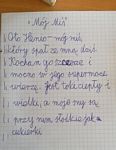 "Mój Miś"
Oto Henio - mój miś,
który spał ze mną dziś.
Kocham go szczerze i
mocno w jego supermoce
wierzę. Jest taki ciepły i
wielki, a może my są
przy nim słodkie jak
cukierki